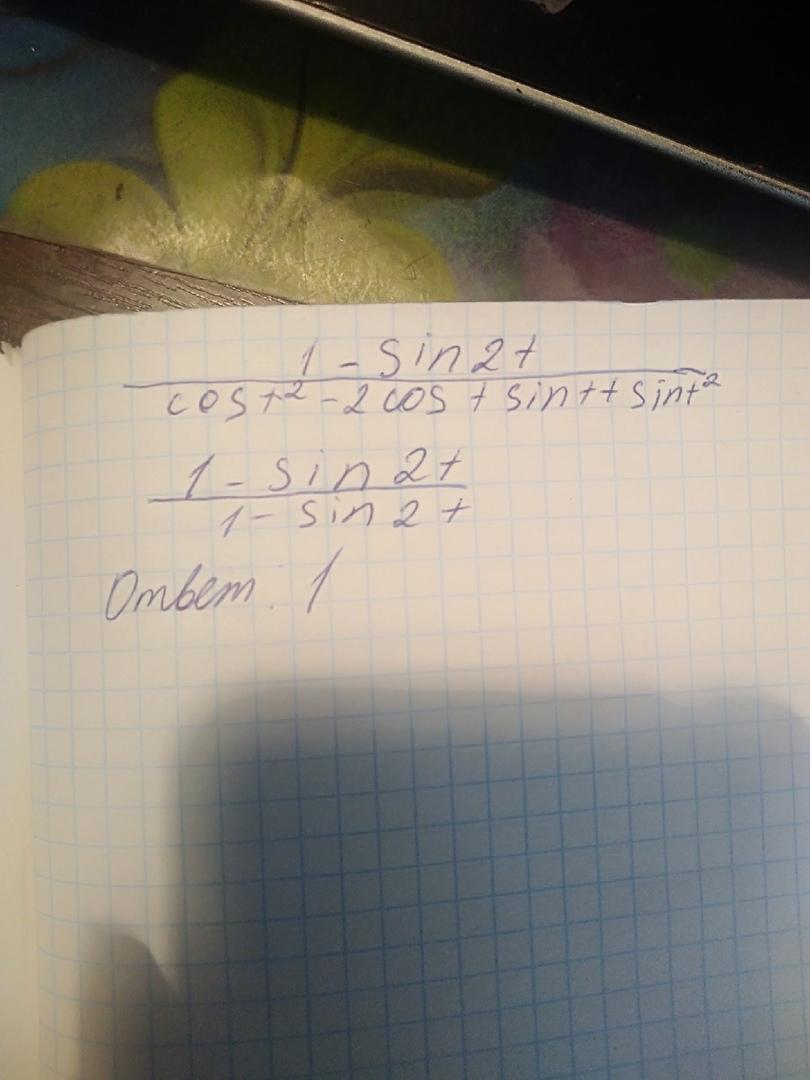 1 - sin 2t
cos t² - 2 cos t sin t + sin t²
1 - sin 2t
1 - sin 2t
Ответ: 1